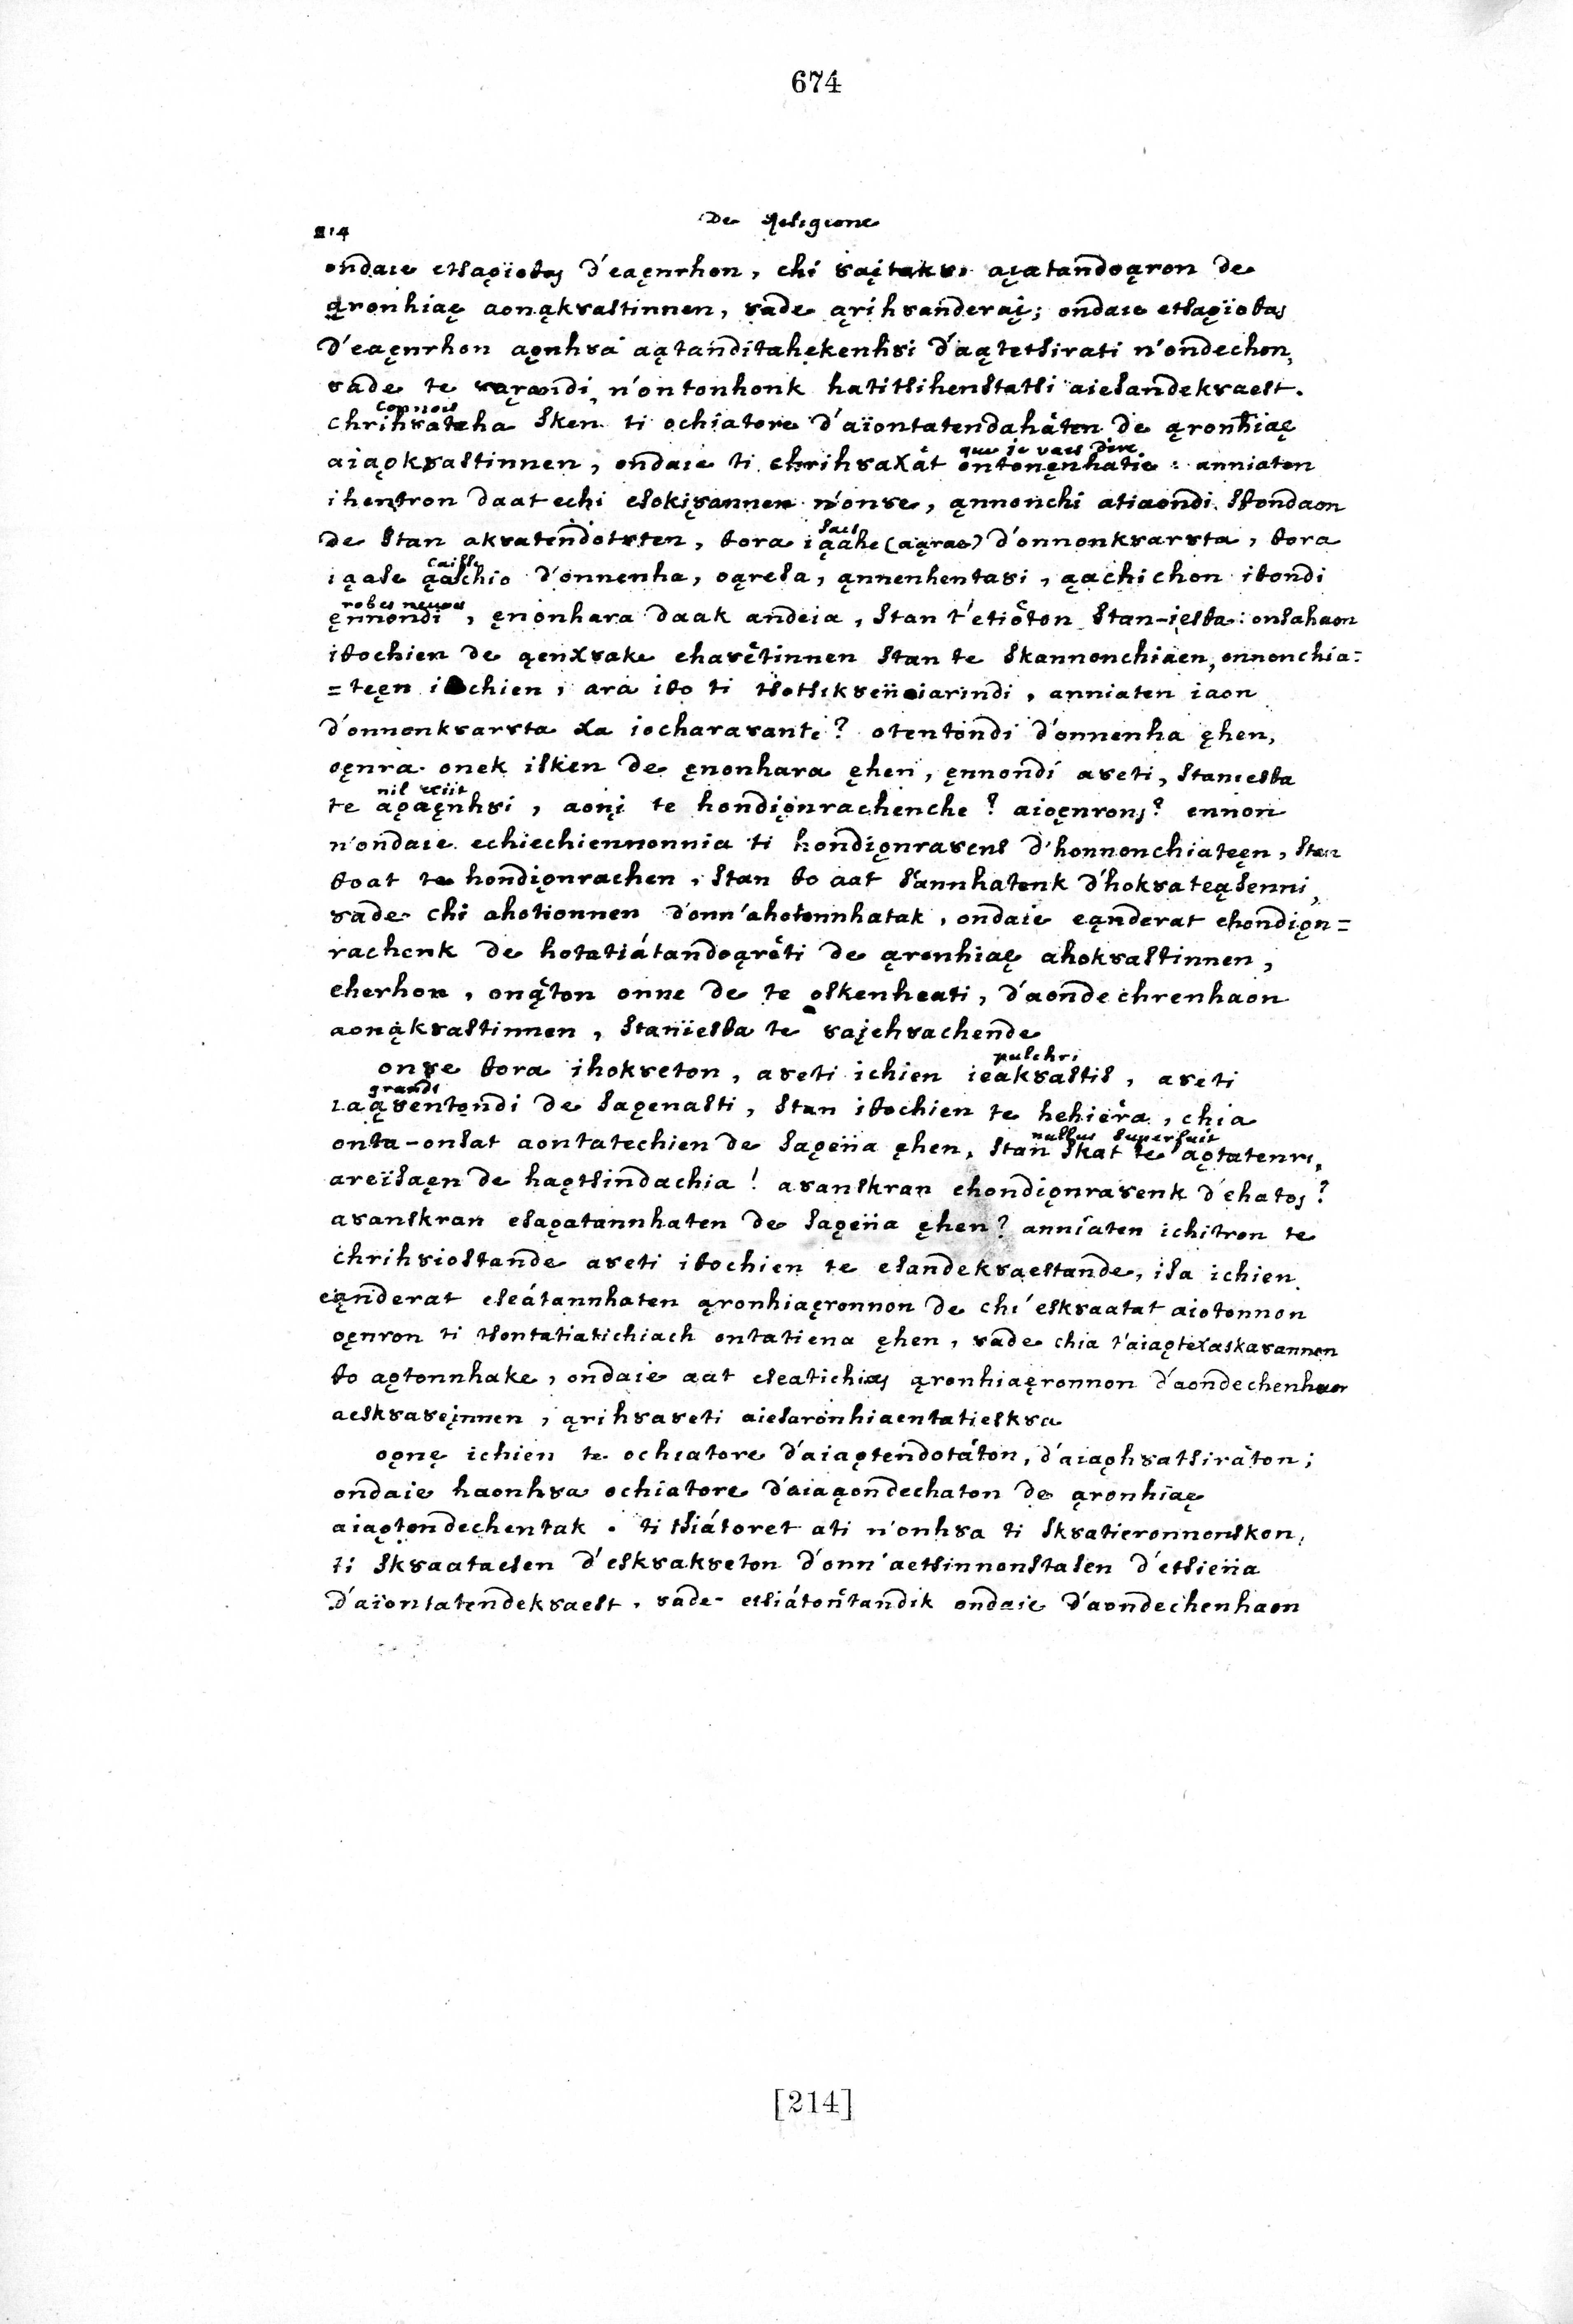 674
De Religione
214
ondaie etsagïoθas d'eaęnrhon, chi ȣaįtakȣi aįatandoąron de
ąronhiaę aonąkȣastinnen, ȣade ąrihȣanderaį; ondaie etsagïoθas
d'eaęnrhon aǫnhȣa aątanditahękenhȣi d'aątetsirati n'ondechon,
ȣade te ȣarǫndi, n'ontonhonk hatitsihenstatsi aiesandekȣaest.
connois
chrihȣateha sken ti ochiatore d'aïontatendahaten de ąronhiaę
que je vais dire
aiaǫkȣastinnen, ondaie ti chrihȣaχat ontonęnhatie: anniaten
ihentron daat echi esokiȣannen n'onȣe, ąnnonchi atiaondi sθondaon
sacs
de stan akȣatendotȣten, θora iąahe (aąras) d'onnonkȣarȣta, θora
caisse
iąase ąaschio d'onnenha, oąresa, ąnnenhentaȣi, ąachichon iθondi
robes neuves
ęnnondi, ęnonhara daak andeia, stan t'etioton stan-iesθa: onsahaon
iθochien de ąenχȣake ehaȣetinnen stan te skannonchiaen, onnonchia=
=teęn iθochien, ara iθo ti tsotsikȣeniarindi, anniaten iaon
d'onnonkȣarȣta χa iocharaȣante? otentondi d'onnenha ęhen,
oęnra onek isken de ęnonhara ęhen, ęnnondi aȣeti, staniesθa
nil exiit
te aǫaęnhȣi, aonį te hondiǫnrachenche? aioęnrons? ennon
n'ondaie echiechiennonnia ti hondiǫnraȣens d'honnonchiateęn, stan
θoat te hondiǫnrachen, stan θo aat sannhatenk d'hokȣateąsenni,
ȣade chi ahotionnen d'onn'ahotonnhatak, ondaie eąnderat ehondiǫn=
rachenk de hotatiátandoąreti de ąronhiaę ahokȣastinnen,
eherhon, onąton onne de te oskenheati, d'aondechrenhaon
aonąkȣastinnen, stanïesθa te ȣajehȣachende
pulchri
onȣe θora ihokȣeton, aȣeti ichien ieakȣastis, aȣeti
grandi
iaąȣentǫndi de sagenasti, stan iθochien te hehiera, chia
nullus superfuit
onta-onsat aontatechien de sageïia ęhen, stan skat te aǫtatenrȣ,
areïsaęn de haǫtsindachia! aȣanskran ehondiǫnraȣenk d'ehatos?
aȣanskran esaǫatannhaten de sageïia ęhen? anniaten ichitron te
chrihȣiostande aȣeti iθochien te esandekȣaestande, isa ichien
eąnderat eseátannhaten ąronhiaęronnon de chi'eskȣaatat aiotonnon
oęnron ti tsontatiatichiach ontatiena ęhen, ȣade chia t'aiaǫteχaskaȣannen
θo aǫtonnhake, ondaie aat eseatichias ąronhiaęronnon d'aondechenhaon
aeskȣaȣeįnnen, ąrihȣaȣeti aiesaronhiaentatieskȣa
oǫnę ichien te ochiatore d'aiaǫtendotaton, d'aiaǫhȣatsiraton;
ondaie haonhȣa ochiatore d'aiaąondechaton de ąronhiaę
aiaǫtondechentak. ti tsiátoret ati n'onhȣa ti skȣatieronnonskon,
ti skȣaataesen d'eskȣakȣeton d'onn'aetsinnonstasen d'etsieïia
d'aïontatendekȣaest, ȣade etsiátontandik ondaie d'aondechenhaon
[214]